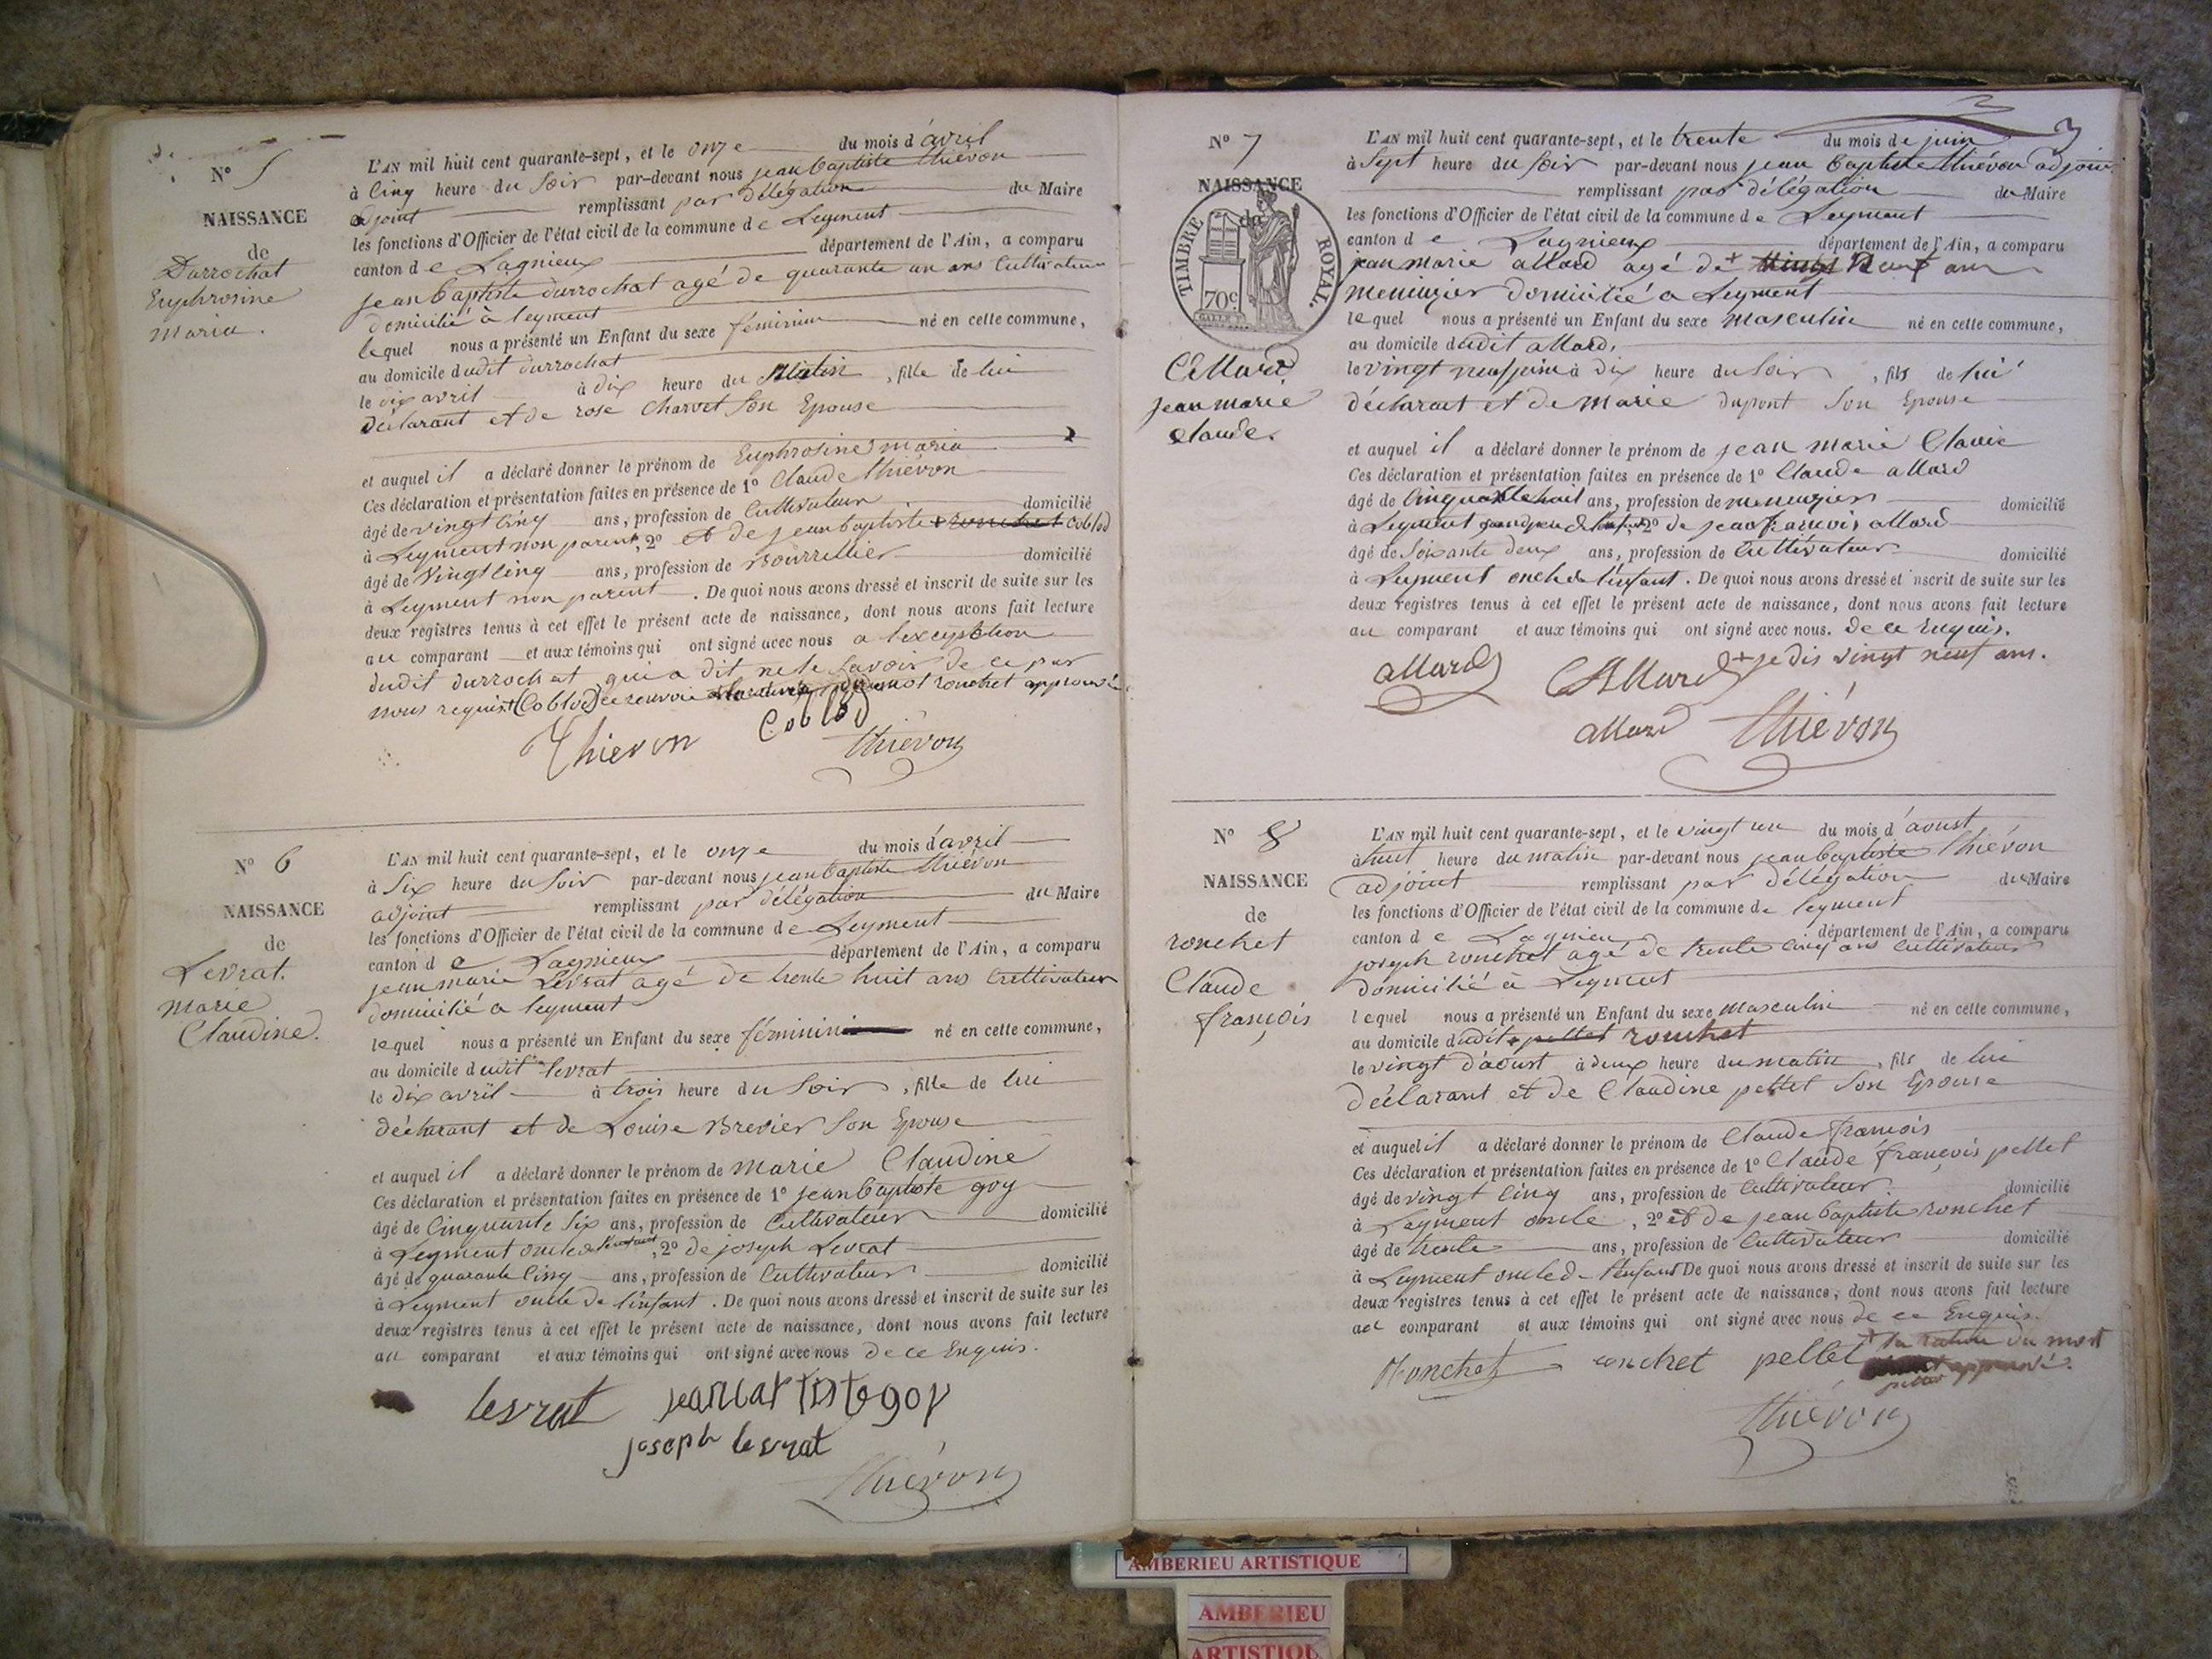 N° 5
NAISSANCE
de
Durrochat
Euphrosine
maria.
L'AN mil huit cent quarante-sept, et le onze du mois d'avril
à cinq heure du soir par-devant nous jean baptiste thiévon
adjoint remplissant par délégation du Maire
les fonctions d'Officier de l'état civil de la commune de Leyment
canton de Lagnieux département de l'Ain, a comparu
jean baptiste durrochat agé de quarante un ans cultivateur
domicilié à leyment
lequel nous a présenté un Enfant du sexe féminin né en cette commune,
au domicile dudit durrochat
le dix avril à dix heure du Matin, fille de lui
déclarant et de rose charvet son Epouse
et auquel il a déclaré donner le prénom de Euphrosine maria
Ces déclaration et présentation faites en présence de 1° Claude thiévon
âgé de vingt cinq ans, profession de cultivateur domicilié
à Leyment non parent, 2° et de jean baptiste ronchet coblod
âgé de vingt cinq ans, profession de Bourrellier domicilié
à Leyment non parent. De quoi nous avons dressé et inscrit de suite sur les
deux registres tenus à cet effet le présent acte de naissance, dont nous avons fait lecture
au comparant et aux témoins qui ont signé avec nous a l'exception
dudit durrochat qui a dit ne le savoir de ce par
nous requis (Coblod) ce renvoi mot ronchet approuvé
Thievon Coblod
thiévon
N° 6
NAISSANCE
de
Levrat.
marie
Claudine.
L'AN mil huit cent quarante-sept, et le onze du mois d'avril
à six heure du soir par-devant nous jean baptiste thiévon
adjoint remplissant par délégation du Maire
les fonctions d'Officier de l'état civil de la commune de Leyment
canton de Lagnieux département de l'Ain, a comparu
jean marie Levrat agé de trente huit ans cultivateur
domicilié a leyment
lequel nous a présenté un Enfant du sexe féminin né en cette commune,
au domicile dudit levrat
le dix avril à trois heure du soir, fille de lui
déclarant et de Louise Brevier son Epouse
et auquel il a déclaré donner le prénom de marie Claudine
Ces déclaration et présentation faites en présence de 1° jean baptiste goy
âgé de cinquante six ans, profession de cultivateur domicilié
à Leyment oncle de l'enfant, 2° de joseph Levrat
âgé de quarante cinq ans, profession de cultivateur domicilié
à Leyment oncle de l'enfant. De quoi nous avons dressé et inscrit de suite sur les
deux registres tenus à cet effet le présent acte de naissance, dont nous avons fait lecture
au comparant et aux témoins qui ont signé avec nous de ce Enquis.
levrat jean batiste goy
joseph levrat
thiévon
N° 7
NAISSANCE
de
TIMBRE ROYAL.
70c
Allard
jean marie
claude.
L'AN mil huit cent quarante-sept, et le trente du mois de juin
à sept heure du soir par-devant nous jean baptiste thiévon adjoint
remplissant par délégation du Maire
les fonctions d'Officier de l'état civil de la commune de Leyment
canton de Lagnieux département de l'Ain, a comparu
jean marie allard agé de + vingt neuf ans
menuizier domicilié a Leyment
lequel nous a présenté un Enfant du sexe masculin né en cette commune,
au domicile dudit allard.
le vingt neuf juin à dix heure du soir, fils de lui
déclarant et de marie dupont son Epouse
et auquel il a déclaré donner le prénom de jean marie Claude
Ces déclaration et présentation faites en présence de 1° Claude allard
âgé de cinquante huit ans, profession de menuizier domicilié
à Leyment grand pere de l'enfant, 2° de jean francois allard
âgé de soixante deux ans, profession de cultivateur domicilié
à Leyment oncle de l'enfant. De quoi nous avons dressé et inscrit de suite sur les
deux registres tenus à cet effet le présent acte de naissance, dont nous avons fait lecture
au comparant et aux témoins qui ont signé avec nous. de ce Enquis.
allard CAllard + je dis vingt neuf ans.
allard thiévon
N° 8
NAISSANCE
de
ronchet
Claude
françois
L'AN mil huit cent quarante-sept, et le vingt un du mois d'aoust
à huit heure du matin par-devant nous jean baptiste thiévon
adjoint remplissant par délégation du Maire
les fonctions d'Officier de l'état civil de la commune de leyment
canton de Lagnieu département de l'Ain, a comparu
joseph ronchet agé de trente cinq ans cultivateur
domicilié à Leyment
lequel nous a présenté un Enfant du sexe masculin né en cette commune,
au domicile dudit + pellet ronchet
le vingt d'aoust à deux heure du matin, fils de lui
déclarant et de Claudine pellet son Epouse
et auquel il a déclaré donner le prénom de Claude francois
Ces déclaration et présentation faites en présence de 1° Claude françois pellet
âgé de vingt cinq ans, profession de cultivateur domicilié
à Leyment oncle, 2° et de jean baptiste ronchet
âgé de trente ans, profession de cultivateur domicilié
à Leyment oncle de l'enfant De quoi nous avons dressé et inscrit de suite sur les
deux registres tenus à cet effet le présent acte de naissance, dont nous avons fait lecture
au comparant et aux témoins qui ont signé avec nous de ce Enquis.
Ronchet ronchet pellet + la rature du mot
pellet approuvé.
thiévon
AMBERIEU ARTISTIQUE
AMBERIEU
ARTISTIQU